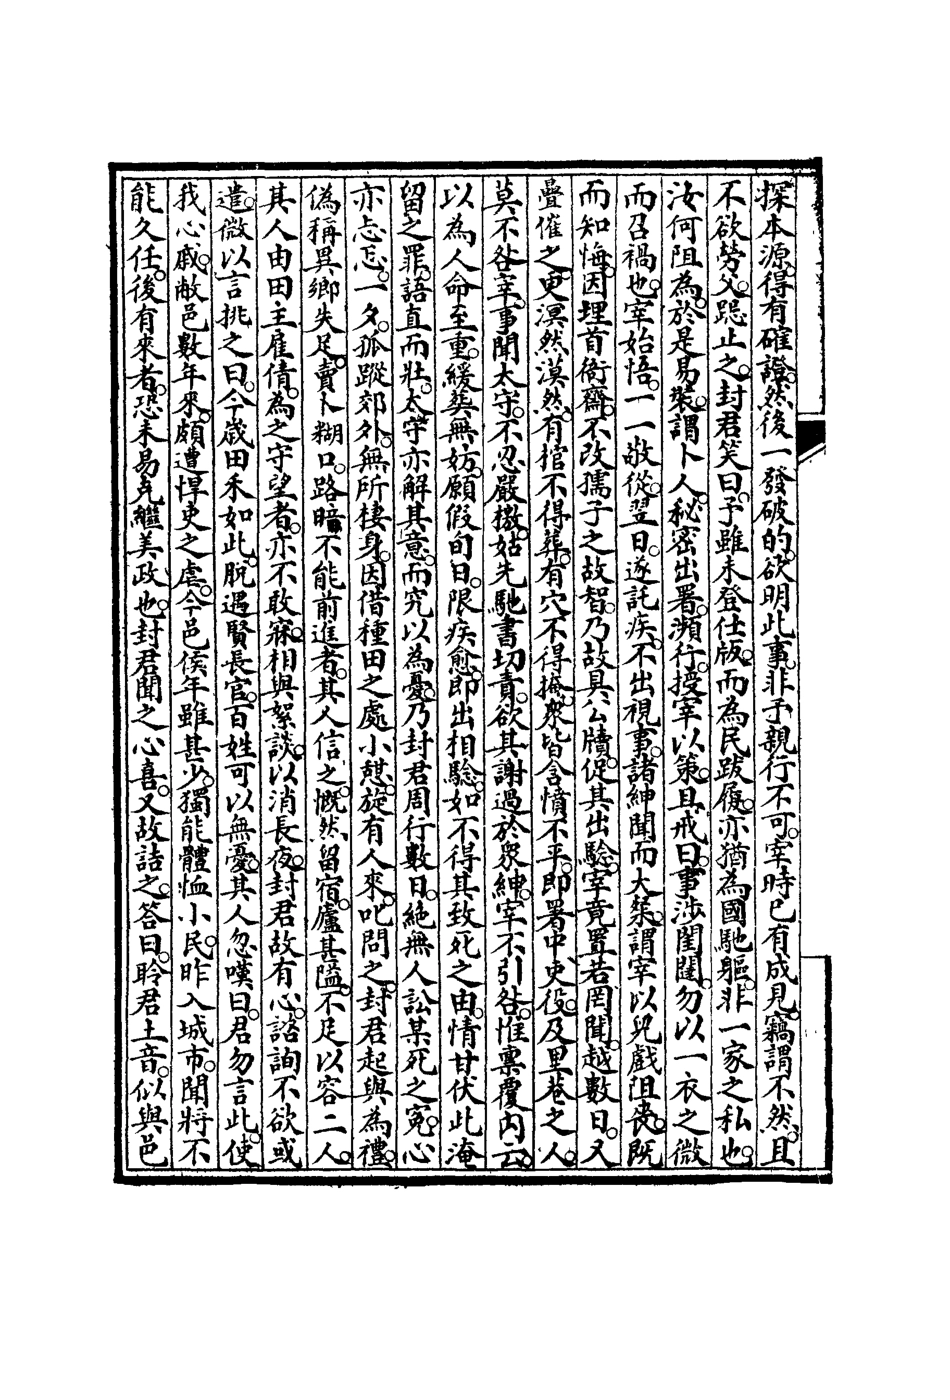 探本源。得有確證。然後一發破的。欲明此事。非予親行不可。宰時已有成見。竊謂不然。且
不欲勞父。跽止之。封君笑曰。予雖未登仕版。而為民跋履。亦猶為國馳驅。非一家之私也。
汝何阻為。於是易裝。謂卜人。秘密出署。瀕行。授宰以策。且戒曰。事涉閨闥。勿以一衣之微
而召禍也。宰始悟。一一敬從。翌日。遂託疾。不出視事。諸紳聞而大笑。謂宰以兒戲阻喪。既
而知悔。因埋首衙齋。不改孺子之故智。乃故具公牘。促其出驗。宰竟置若罔聞。越數日。又
疊催之。更溟然漠然。有棺不得葬。有穴不得掩。衆皆含憤不平。即署中吏役。及里巷之人。
莫不咎宰。事聞太守。不忍嚴檄。姑先馳書切責。欲其謝過於衆紳。宰不引咎。惟稟覆內云。
以為人命至重。緩葬無妨。願假旬日。限疾愈。即出相驗。如不得其致死之由。情甘伏此淹
留之罪。語直而壯。太守亦解其意。而究以為憂。乃封君周行數日。絕無人訟某死之冤。心
亦忐忑。一夕。孤蹤郊外。無所棲身。因借種田之處小憩。旋有人來。叱問之。封君起與為禮。
偽稱異鄉失足。賣卜糊口。路暗不能前進者。其人信之。慨然留宿。廬甚隘。不足以容二人。
其人由田主雇倩。為之守望者。亦不敢寐。相與絮談。以消長夜。封君故有心。諮詢不欲或
遣。微以言挑之曰。今歲田禾如此。脫遇賢長官。百姓可以無憂。其人忽嘆曰。君勿言此。使
我心戚。敝邑數年來。頗遭悍吏之虐。今邑侯年雖甚少。獨能體恤小民。昨入城市。聞將不
能久任。後有來者。恐未易克繼美政也。封君聞之心喜。又故詰之。答曰。聆君土音。似與邑